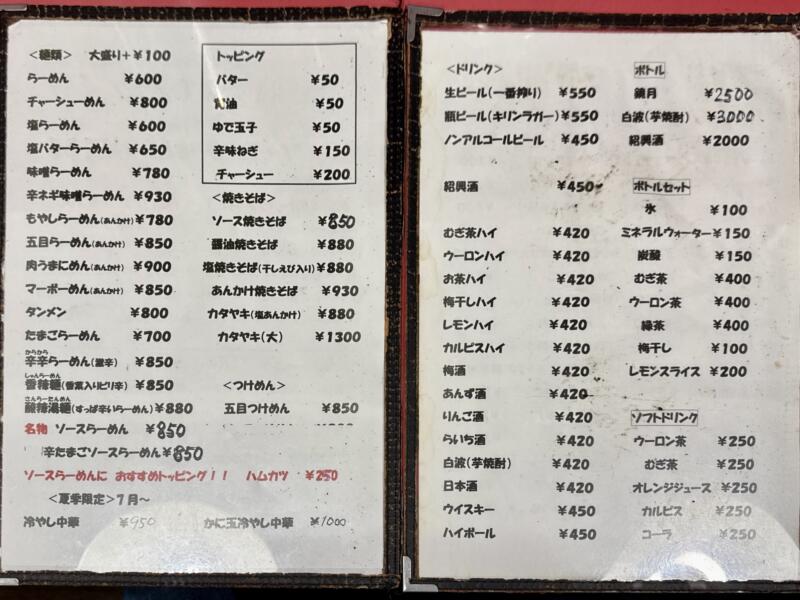 ＜麺類＞ 大盛り+￥100
らーめん ￥600
チャーシューめん ￥800
塩らーめん ￥600
塩バターらーめん ￥650
味噌らーめん ￥780
辛ネギ味噌らーめん ￥930
もやしらーめん(あんかけ) ￥780
五目らーめん(あんかけ) ￥850
肉うまにめん(あんかけ) ￥900
マーボーめん(あんかけ) ￥850
タンメン ￥800
たまごらーめん ￥700
からから
辛辛らーめん(激辛) ￥850
しゃんらーめん
香辣麺(香菜入りピリ辛) ￥850
さんらーたんめん
酸辣湯麺(すっぱ辛いらーめん) ￥880
名物 ソースらーめん ￥850
辛たまごソースらーめん ￥850
ソースらーめんに おすすめトッピング！！ ハムカツ ￥250
＜夏季限定＞７月～
冷やし中華 ￥950 かに玉冷やし中華 ￥1000
トッピング
バター ￥50
油 ￥50
ゆで玉子 ￥50
辛味ねぎ ￥150
チャーシュー ￥200
＜焼きそば＞
ソース焼きそば ￥850
醤油焼きそば ￥880
塩焼きそば(干しえび入り) ￥880
あんかけ焼きそば ￥930
カタヤキ(塩あんかけ) ￥880
カタヤキ(大) ￥1300
＜つけめん＞
五目つけめん ￥850
＜ドリンク＞
生ビール(一番搾り) ￥550
瓶ビール(キリンラガー) ￥550
ノンアルコールビール ￥450
紹興酒 ￥450
むぎ茶ハイ ￥420
ウーロンハイ ￥420
お茶ハイ ￥420
梅干しハイ ￥420
レモンハイ ￥420
カルピスハイ ￥420
梅酒 ￥420
あんず酒 ￥420
りんご酒 ￥420
らいち酒 ￥420
白波(芋焼酎) ￥420
日本酒 ￥420
ウイスキー ￥450
ハイボール ￥450
ボトル
鏡月 ￥2500
白波(芋焼酎) ￥3000
紹興酒 ￥2000
ボトルセット
氷 ￥100
ミネラルウォーター ￥150
炭酸 ￥150
むぎ茶 ￥400
ウーロン茶 ￥400
緑茶 ￥400
梅干し ￥100
レモンスライス ￥200
ソフトドリンク
ウーロン茶 ￥250
むぎ茶 ￥250
オレンジジュース ￥250
カルピス ￥250
コーラ ￥250